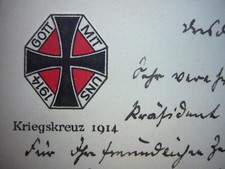 GOTT MIT UNS 1914
Kriegskreuz 1914
Sehr vereh
Präsident
Für Ihr freundliches